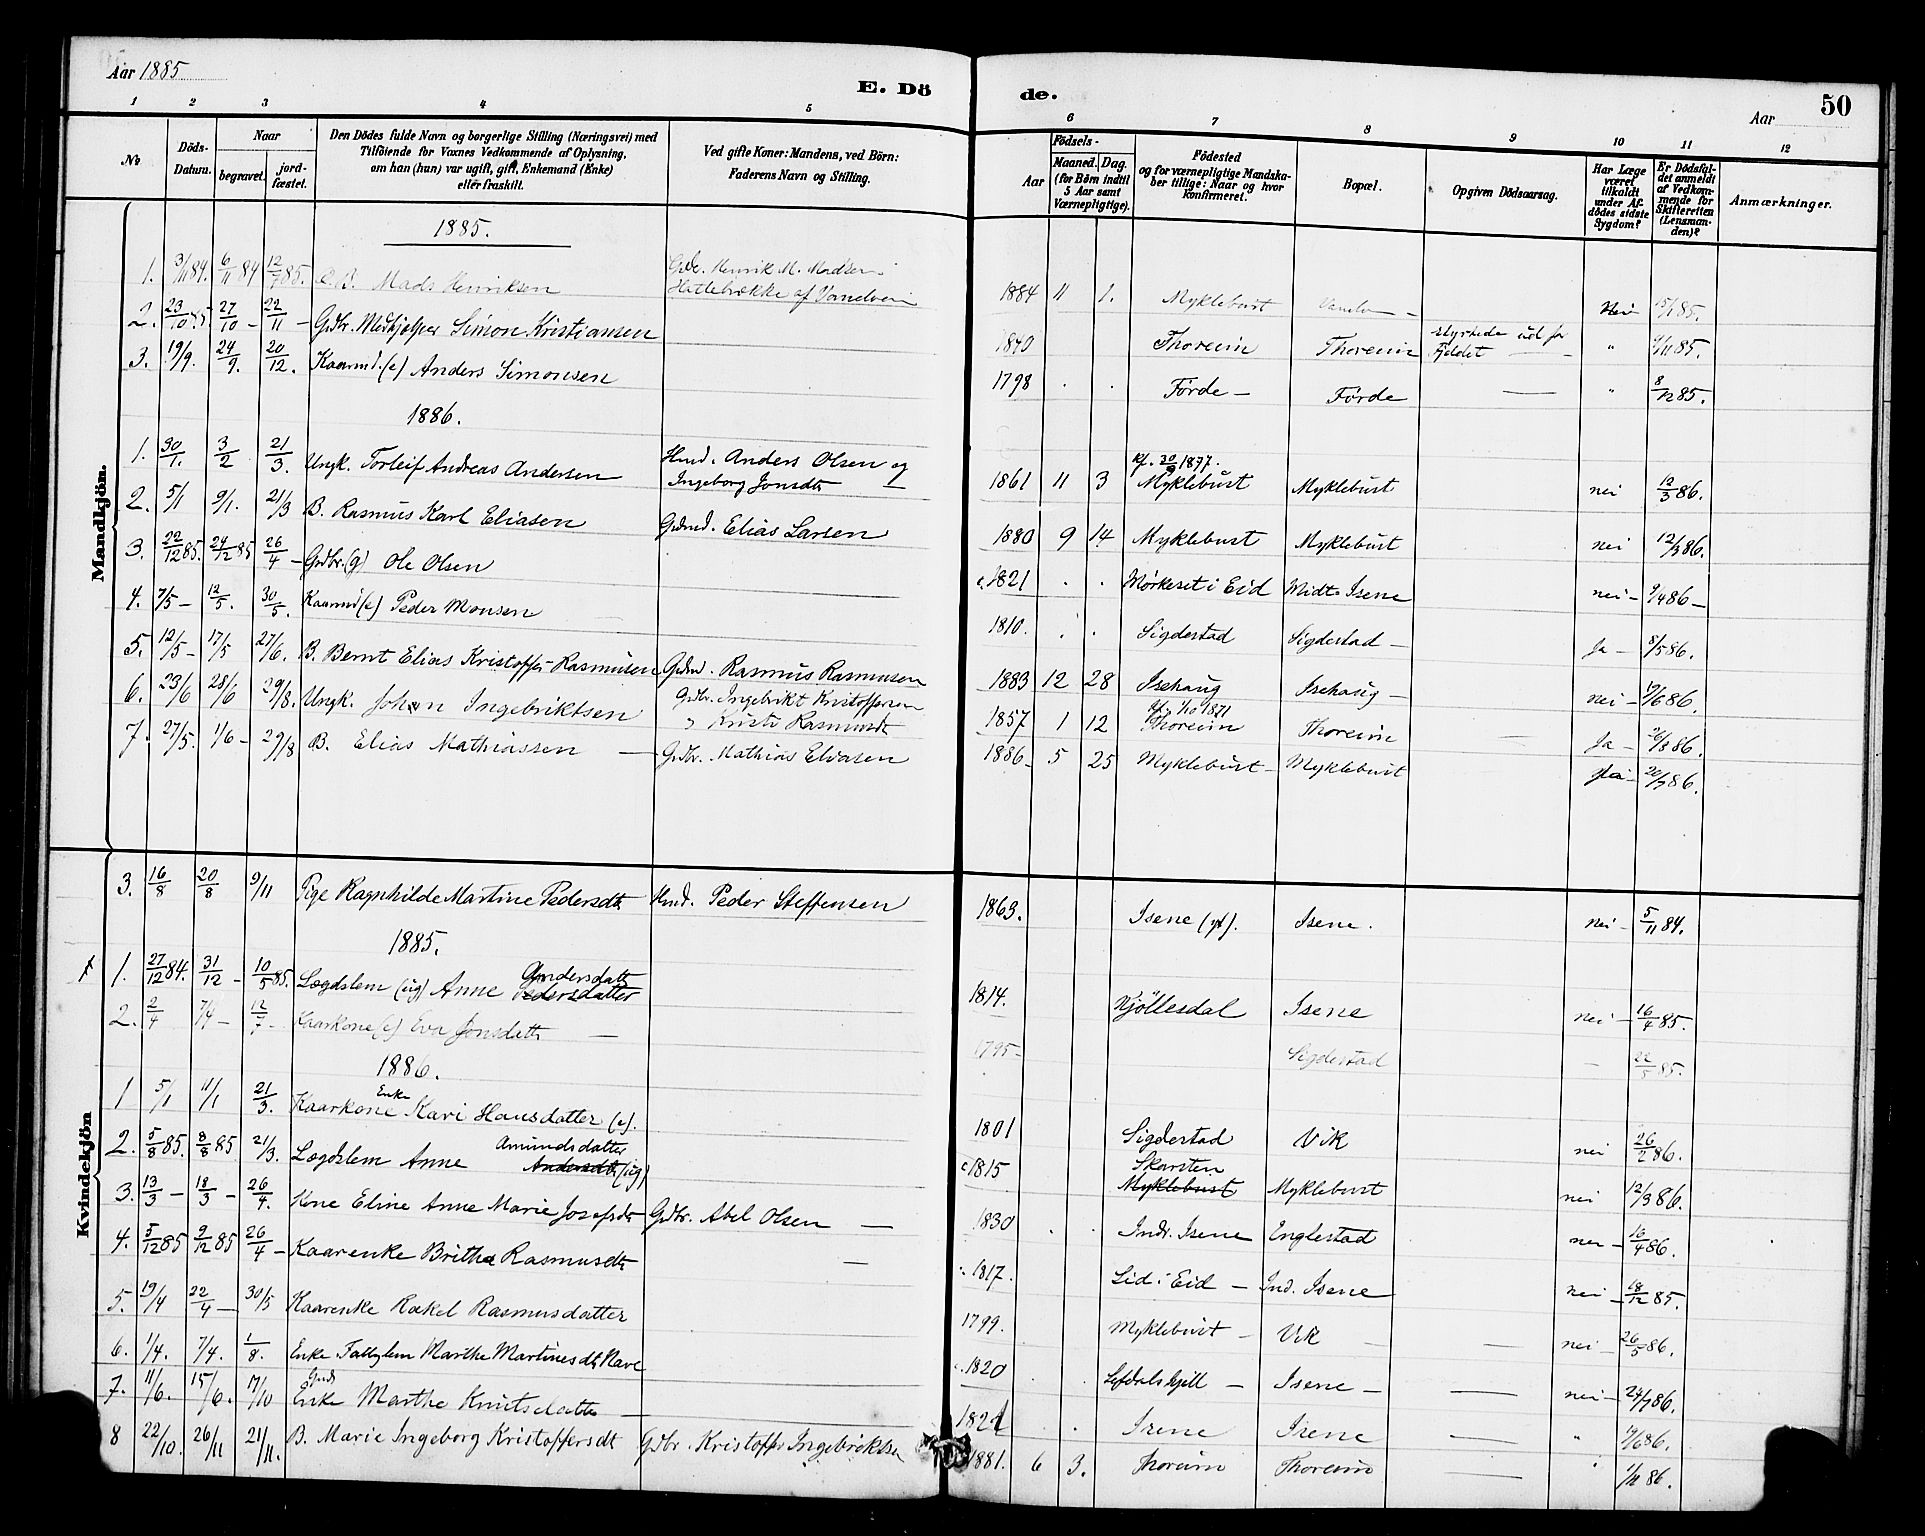 Aar 1885
E. Dö de.
Aar
50
1 2 3 4 5 6 7 8 9 10 11 12
No
Döds-Datum.
Naar
begravet.
jord-fæstet.
Den Dödes fulde Navn og borgerlige Stilling (Næringsvei) med
Tilföiende for Voxnes Vedkommende af Oplysning,
om han (hun) var ugift, gift, Enkemand (Enke)
eller fraskilt.
Ved gifte Koner: Mandens, ved Börn:
Faderens Navn og Stilling.
Aar
Födsels-
Maaned. Dag.
(for Börn indtil
5 Aar samt
Værnepligtige).
Födested
og for værnepligtige Mandska-
ber tillige: Naar og hvor
konfirmeret.
Bopæl.
Opgiven Dödsaarsag.
Har Læge
været
tilkaldt
under Af-
dödes sidste
Sygdom?
Er Dödsfal-
det anmeldt
af Vedkom-
mende for
Skifteretten
(Lensman-
den)?
Anmærkninger.
Mandkjön.
1885.
1. 3/11 84. 6/11 84 12/7 85. Mads Henriksen Gdbr. Henrik M. Madsen Hattebrække af Vandven 1884 11 1. Myklebust Nei 15/1 85.
2. 23/10 85. 27/10 - 22/11 - Gdbr. Medhjelper Simon Kristiansen 1840 Thoreim Thoreim styrtede ud for Fjeldet " 4/11 85.
3. 19/9. 24/9. 20/12. Kaarmd. (e) Anders Simonsen 1798 . . Förde - Förde — " 8/12 85.
1886.
1. 30/1. 3/2 21/3. Ungk. Torleif Andreas Andersen Hmd. Anders Olsen og Ingeborg Jonsdtr — 1861 11 3 kf. 30/9 1877. Myklebust Myklebust nei 12/3 86.
2. 5/1 9/1. 21/3 B. Rasmus Karl Eliasen Gdmd. Elias Larsen 1880 9 14 Myklebust Myklebust nei 12/3 86.
3. 22/12 85. 24/12 85 26/4 - Gdbr. (g) Ole Olsen c. 1821 . . Mörkeset i Eid Midt Isene nei - 9/4 86 -
4. 7/5 - 12/5. 30/5. Kaarmd (e) Peder Monsen 1810. . . Sigdestad Sigdestad - Ja - 8/5 86.
5. 12/5 - 17/5 27/6. B. Bernt Elias Kristoffer Rasmusen Gdmd. Rasmus Rasmusen 1883 12 28 Isehaug Isehaug - nei - 19/6 86.
6. 23/6 28/6 29/8. Ungk. Johan Ingebriktsen Gdbr. Ingebrikt Kristoffersen " Kristi Rasmusdtr 1857 1 12 kf. 1/10 1871 Thoreim Thoreim — Ja - 26/8 86.
7. 27/5. 1/6 - 29/8 B. Elias Mathiassen — Gdbr. Mathias Eliasen 1886 - 5 25 Myklebust - Myklebust 20/7 86.
Kvindekjön
3. 16/8 20/8 9/11 Pige Ragnhilde Martine Pedersdtr Hmd. Peder Steffensen 1863. Isene (yt). Isene. nei - 5/11 84.
1885.
1. 27/12 84. 31/12 - 10/5 85. Lægdslem (ug) Anne Andersdatter Pedersdatter 1814. Hjöllesdal Isene nei - 16/4 85.
2. 2/4 7/4 - 12/7 - Kaarkone (e) Eva Jonsdatter — 1795 - Sigdestad — 22/5 85.
1886.
1 5/1 11/1 21/3. Kaarkone Enke Kari Hansdatter (e). 1801 Sigdestad Vik nei 26/2 86.
2. 5/8 85. 8/8 85 21/3. Lægdslem Anne Amundsdatter Andersdtr (ug) c 1815 Skarsten Myklebust Myklebust nei 12/3 86.
3. 13/3 - 18/3 - 26/4. Kone Eline Anne Marie Josefsdtr Gdbr. Abel Olsen — 1830 . . Indr. Isene Englestad nei - 16/4 86.
4. 5/12 85 9/12 85 26/4 - Kaarenke Brithe Rasmusdtr — c. 1817. Lid i Eid - Ind. Isene nei - 18/12 85.
5. 19/4 22/4 - 30/5 Kaarenke Rakel Rasmusdatter 1799. Myklebust - Vik — nei - 26/5 86.
6. 1/4. 7/4. 1/8. Enke Fattiglem Marthe Martinesdtr Nave c. 1820 . . Lefdalshjell - Isene - — nei - 24/7 86.
7. 11/6. 15/6. 17/10 Enke Marthe Knutsdatter — 1821 . Isene Isene — "
8 22/10. 26/11 21/11. B. Marie Ingeborg Kristoffersdt Gdbr. Kristoffer Ingebriktsen 1881. 6 3. Thoreim Thoreim — " 1/11 86.